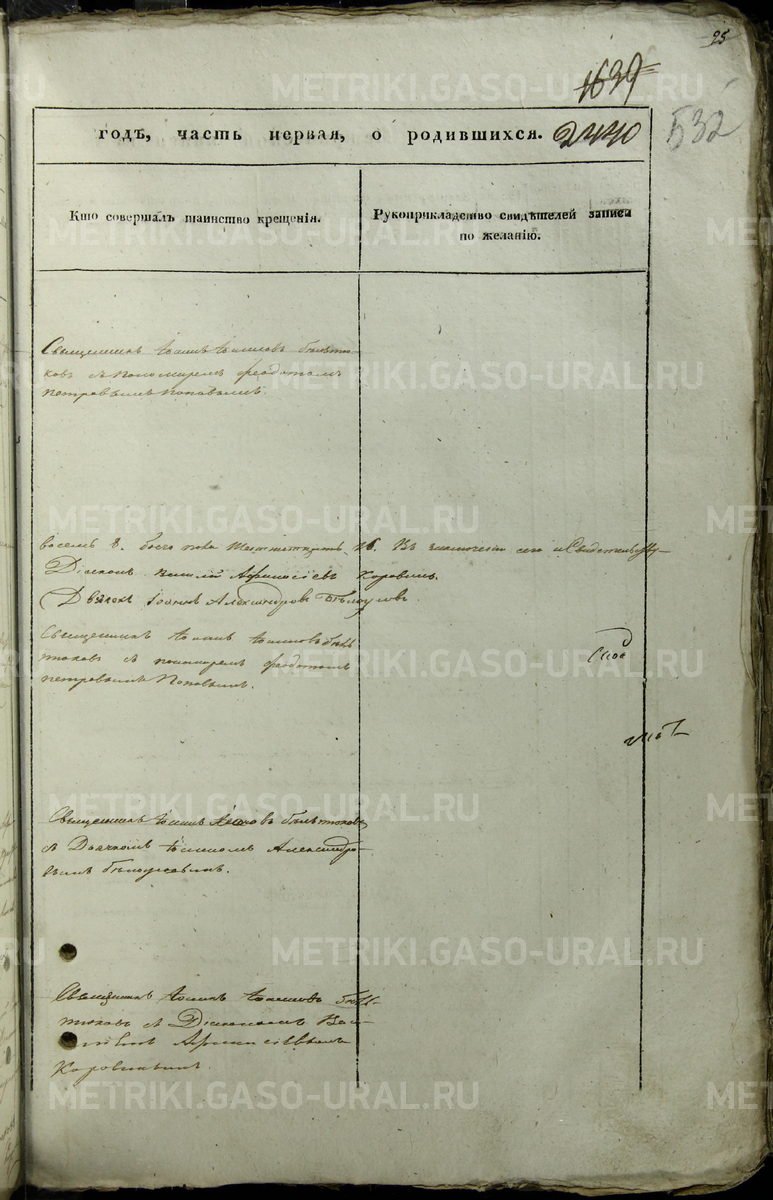 25
1639
годъ, часть первая, о родившихся. 2440
532
Кто совершалъ таинство крещенія.
Рукоприкладство свидѣтелей записи
по желанію.
Священникъ Іоаннъ Іоанновъ
ковъ съ Пономаремъ Феодотомъ
Петровымъ Поповымъ.
восемь 8. пола 16. Въ сего и Свидетельству
Діаконъ Василій Афанасіевъ Коровинъ.
Дьячекъ Іоаннъ Александровъ Белоусовъ
Священникъ Іоаннъ Іоанновъ
съ пономаремъ феодотомъ
петровымъ Поповымъ.
Священникъ Іоаннъ Іоанновъ
съ Дьячкомъ Іоанномъ Александро-
вымъ Белоусовымъ.
Священникъ Іоаннъ Іоанновъ
съ Діакономъ Васи-
ліемъ Афанасіевымъ
Коровинымъ.
METRIKI.GASO-URAL.RU